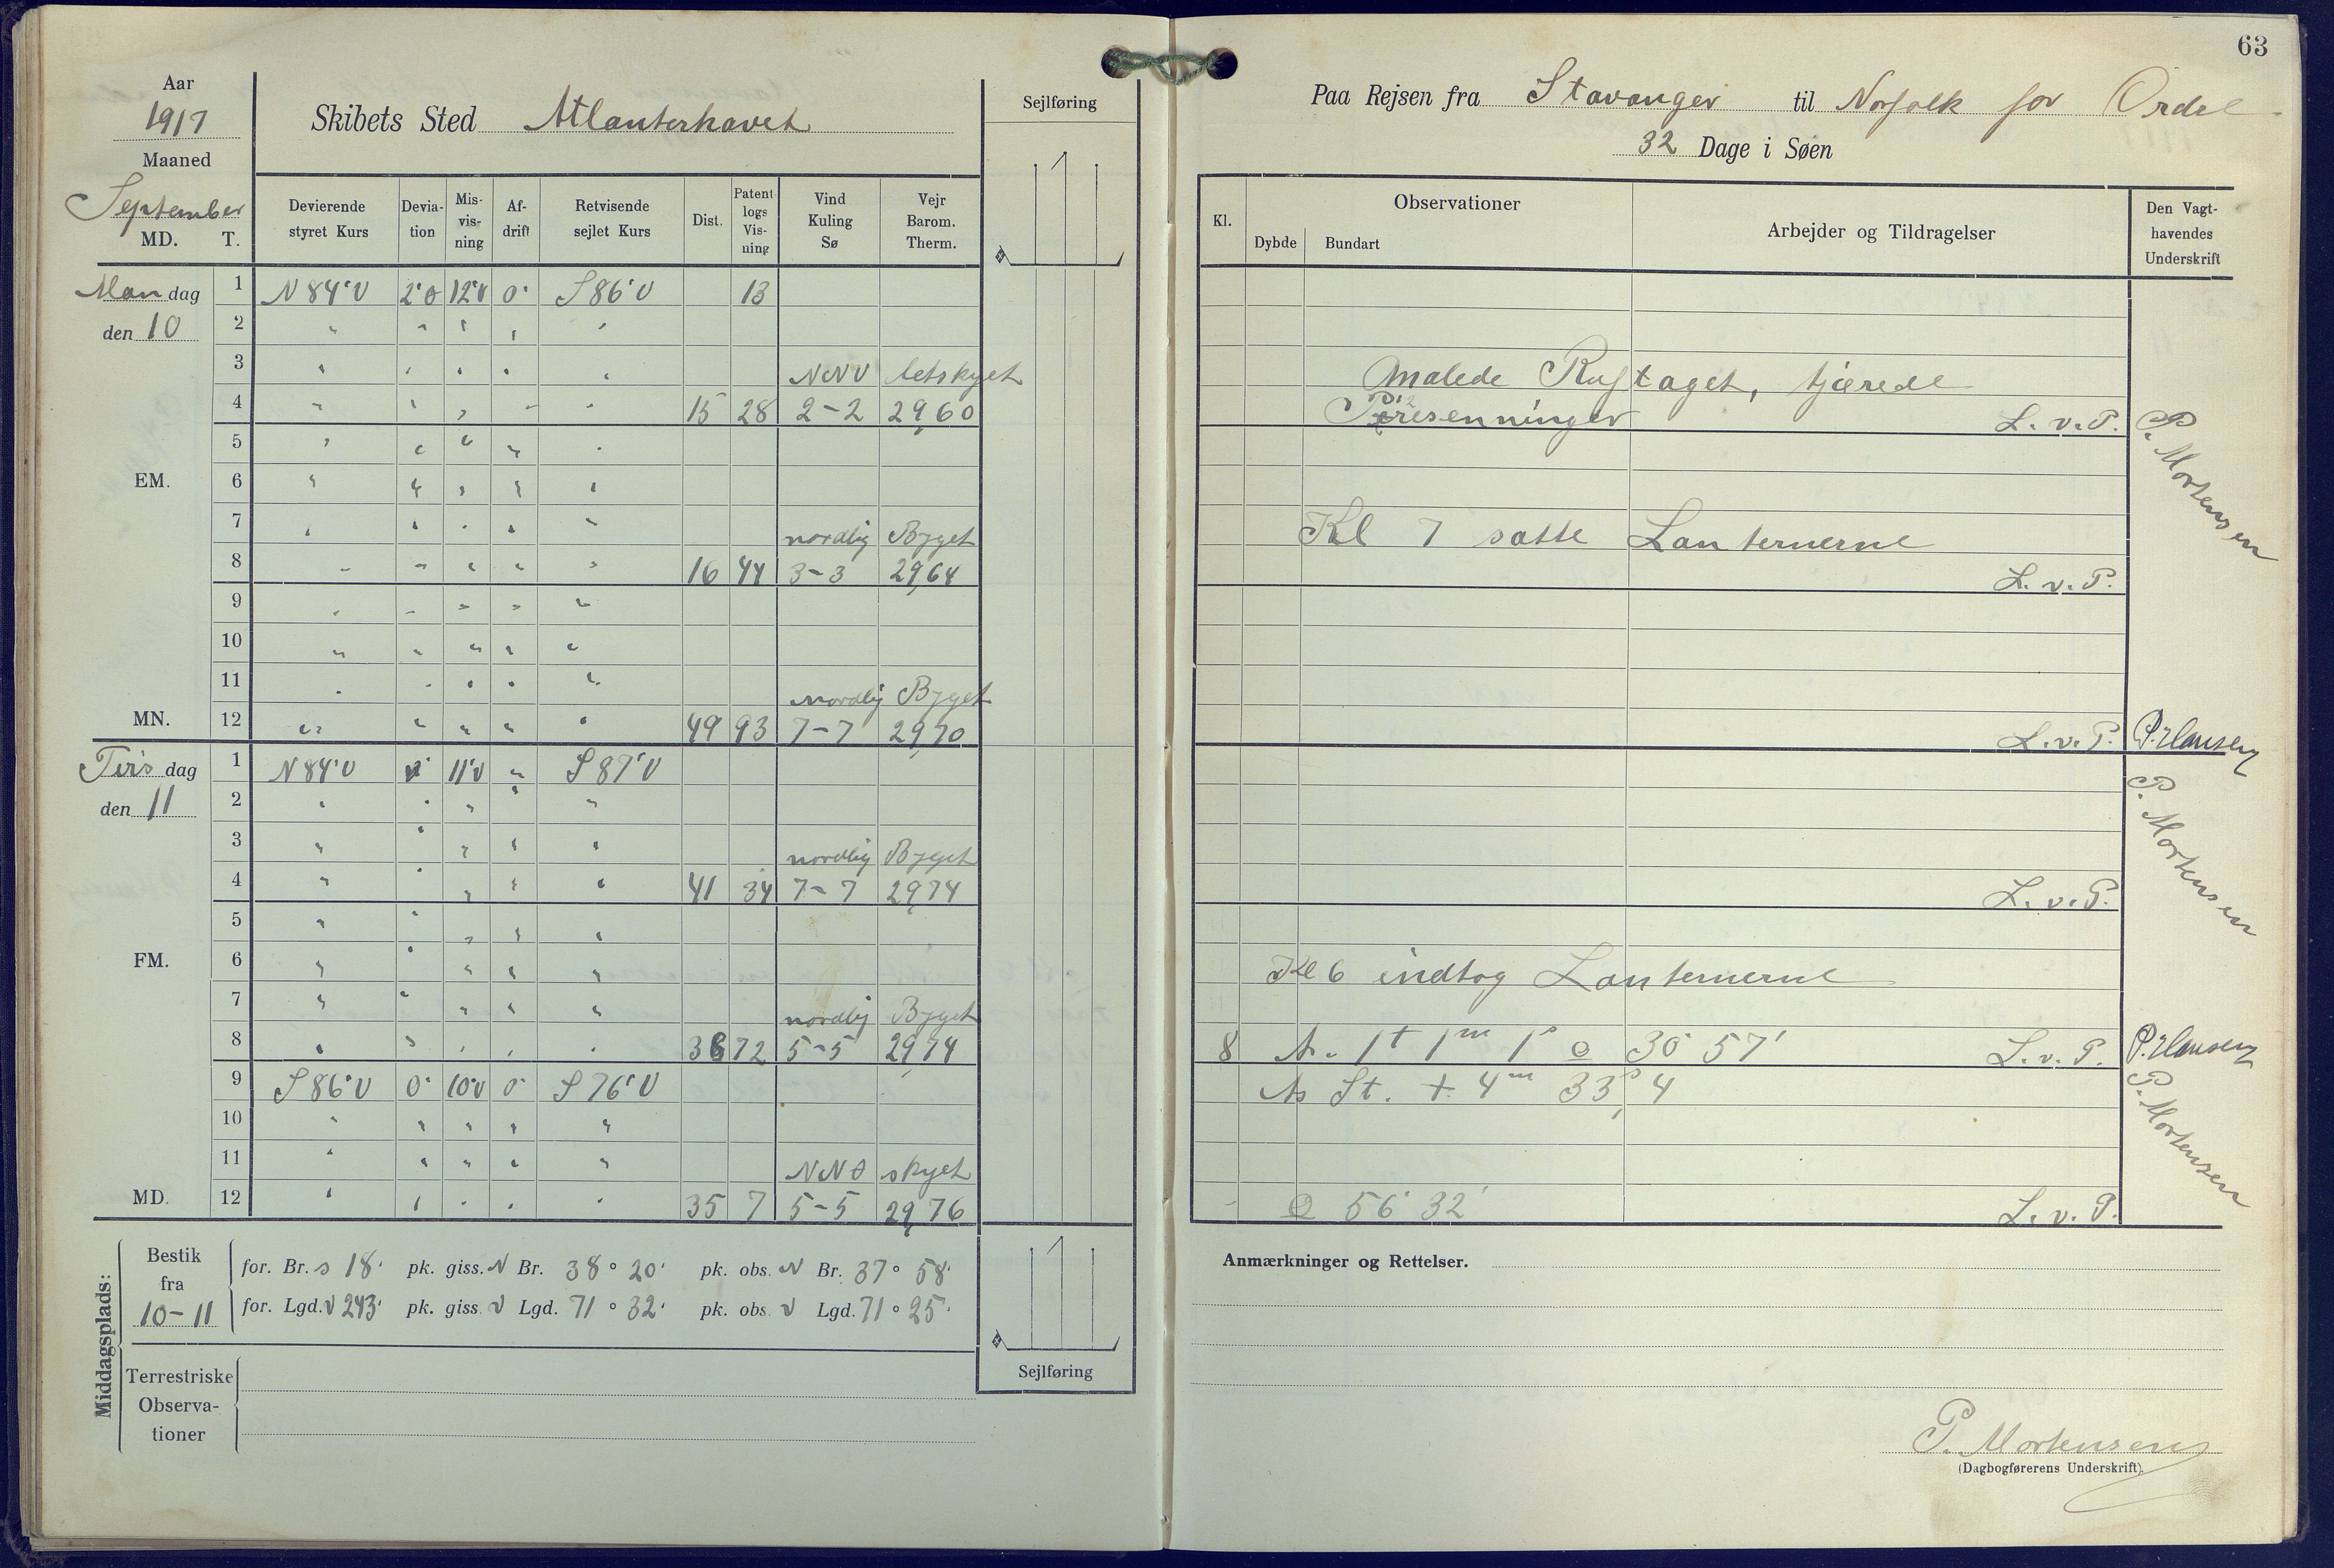 63
Aar
1917
Maaned
September
MD. T.
Skibets Sted Atlanterhavet
Sejlføring
Paa Rejsen fra Stavanger til Norfolk for Ordre
32 Dage i Søen
Devierende styret Kurs
Devia-tion
Mis-vis-ning
Af-drift
Retvisende sejlet Kurs
Dist.
Patent logs Vis-ning
Vind Kuling Sø
Vejr Barom. Therm.
Kl.
Observationer
Dybde Bundart
Arbejder og Tildragelser
Den Vagt-havendes Underskrift
Mandag 1 N 84° V 2° Ø 12° V 0° S 86° V 13
den 10 2 " " " " "
3 " " " " " NNV letskyet
Malede Ruftaget, tjærede
4 " " " " " 15 28 2-2 29,60
Presenninger L. v. P. P. Mortensen
5 " " " " "
EM. 6 " " " " "
7 " " " " " nordlig Byget
Kl 7 satte Lanternerne
8 " " " " " 16 44 3-3 29,64
L. v. P.
9 " " " " "
10 " " " " "
11 " " " " " nordlig Byget
MN. 12 " " " " " 49 93 7-7 29,70
L. v. P. P. Hansen
Tirsdag 1 N 84° V 11° V " S 87° V
den 11 2 " " " " "
3 " " " " " nordlig Byget
4 " " " " " 41 34 7-7 29,74
L. v. P. P. Mortensen
5 " " " " "
FM. 6 " " " " "
Kl 6 indtog Lanternerne
7 " " " " " nordlig Byget
8 " " " " " 38 72 5-5 29,74
8 As. 1t 1m 1s ⊙ 30° 57' L. v. P. P. Hansen
9 S 86° V 0° 10° V 0° S 76° V
As St. + 4m 33s,4
10 " " " " "
11 " " " " " NNØ skyet
MD. 12 " " " " " 35 7 5-5 29,76
- ⊙ 56° 32' L. v. P. P. Mortensen
Middagsplads:
Bestik fra 10-11
for. Br. S 18' pk. giss. N Br. 38° 20' pk. obs. N Br. 37° 58'
for. Lgd. V 243' pk. giss. V Lgd. 71° 32' pk. obs. V Lgd. 71° 25'
Terrestriske Observa-tioner
Sejlføring
Anmærkninger og Rettelser.
P. Mortensen
(Dagbogførerens Underskrift).